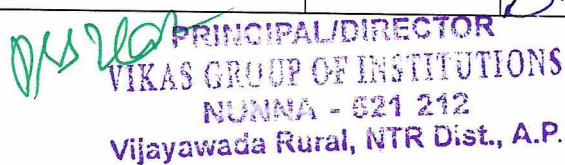 PRINCIPAL/DIRECTOR
VIKAS GROUP OF INSTITUTIONS
NUNNA - 521 212
Vijayawada Rural, NTR Dist., A.P.